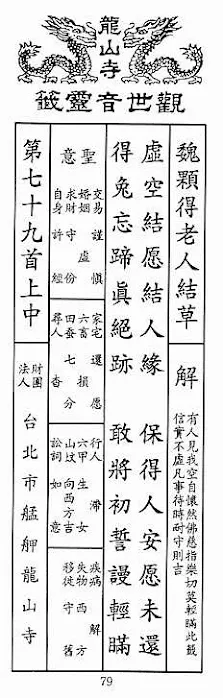 龍山寺
觀世音靈籤
魏顆得老人結草
解
有人見我空自懷然佛慈指樂切莫輕瞞此籤
信實不虛凡事待時耐守則吉
虛空結愿結人緣 保得人安愿未還
得兔忘蹄真絕跡 敢將初誓謾輕瞞
聖意
交易 謹慎
婚姻 虛
求財 守份
自身 許經
家宅 還愿
六畜 損
田蚕 七分
尋人 杳
行人 滯
六甲 生女
山坟 向西方吉
訟詞 如意
疾病 解
失物 西方
移徙 守舊
第七十九首上中
財團法人 台北市艋舺龍山寺
79